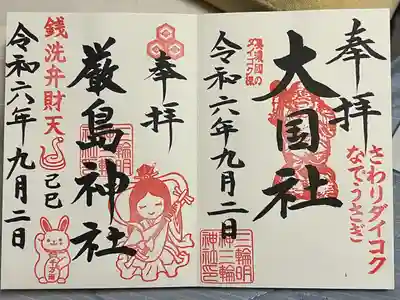 奉拝
大国社
さわりダイコク
なでうさぎ
令和六年九月二日
三輪明
神三輪
神社印
奉拝
厳島神社
銭洗弁財天
己巳
令和六年九月二日